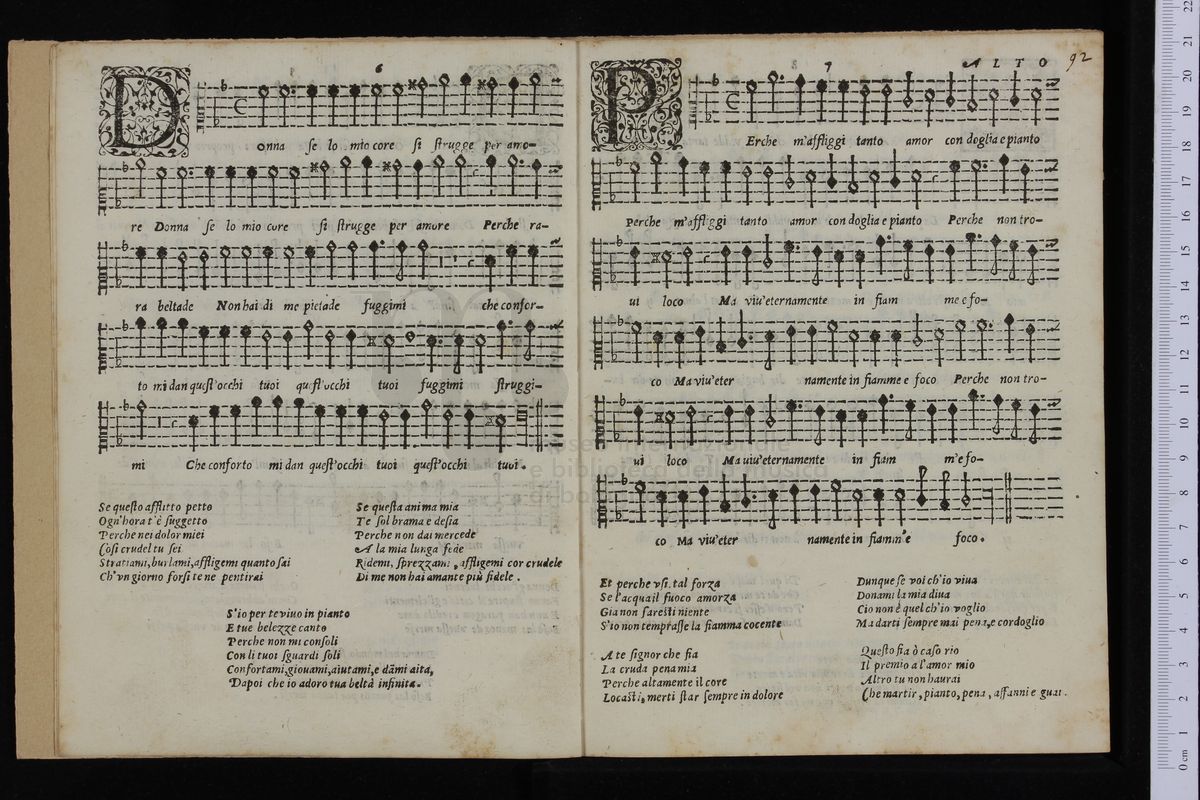 6
Donna ſe lo mio core ſi ſtrugge per amo-
re Donna ſe lo mio core ſi ſtrugge per amore Perche ra-
ra beltade Non hai di me pietade fuggimi che confor-
to mi dan queſt'occhi tuoi queſt'occhi tuoi fuggimi ſtruggi-
mi Che conforto mi dan queſt'occhi tuoi queſt'occhi tuoi.
Se queſto afflitto petto
Ogn'hora t'è ſuggetto
Perche nei dolor miei
Coſi crudel tu ſei
Stratiami,burlami,affligemi quanto ſai
Ch'vn giorno forſi te ne pentirai
Se queſta anima mia
Te ſol brama e deſia
Perche non dai mercede
A la mia lunga fede
Ridemi, ſprezzami, affligemi cor crudele
Di me non hai amante più fidele.
S'io per te viuo in pianto
E tue belezze canto
Perche non mi conſoli
Con li tuoi ſguardi ſoli
Confortami,giouami,aiutami,e dāmi aita,
Dapoi che io adoro tua beltà infinita.
7 ALTO 92
PErche m'affliggi tanto amor con doglia e pianto
Perche m'affliggi tanto amor con doglia e pianto Perche non tro-
ui loco Ma viu'eternamente in fiam me e fo-
co Ma viu'eter namente in fiamme e foco Perche non tro-
ui loco Ma uiu'eternamente in fiam m'e fo-
co Ma viu'eter namente in fiamm'e foco.
Et perche vſi tal forza
Se l'acqua il fuoco amorza
Gia non fareſti niente
S'io non tempraſſe la fiamma cocente
A te ſignor che fia
La cruda pena mia
Perche altamente il core
Locaſti, merti ſtar ſempre in dolore
Dunque ſe voi ch'io viua
Donami la mia diua
Cio non è quel ch'io voglio
Ma darti ſempre mai pena,e cordoglio
Queſto fia ò caſo rio
Il premio a l'amor mio
Altro tu non haurai
Che martir, pianto, pena, affanni e guai.